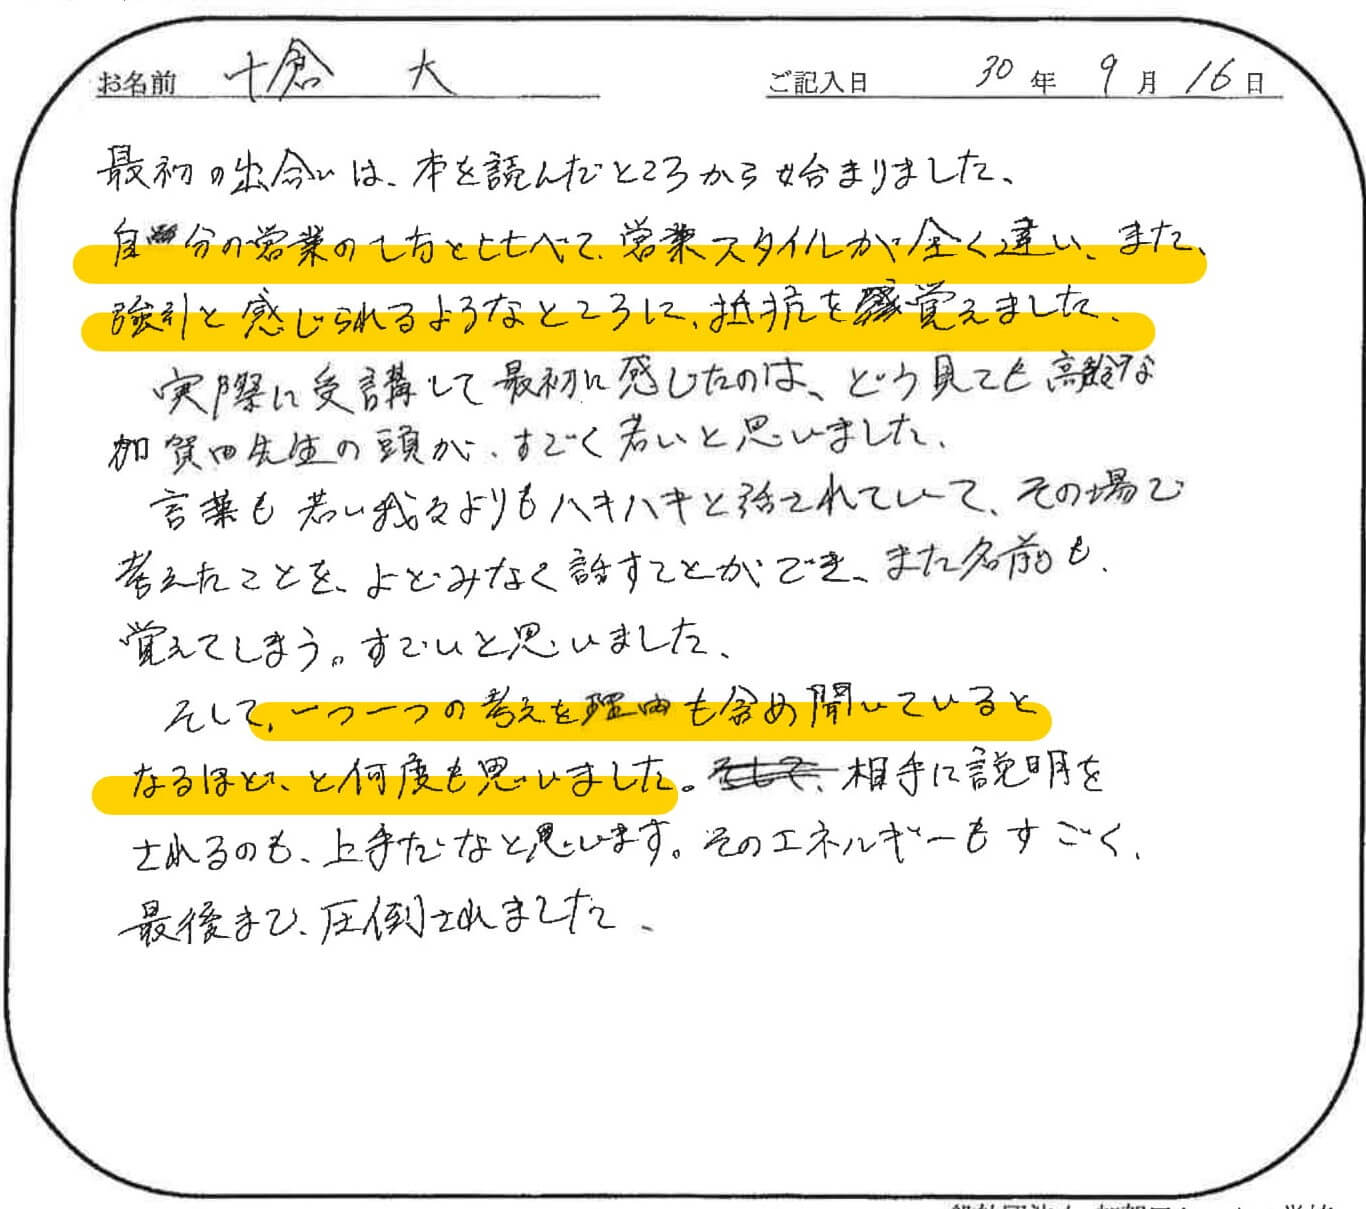 お名前 十倉 大 ご記入日 30年 9月 16日
最初の出会いは、本を読んだところから始まりました、
自分の営業のし方とくらべて、営業スタイルが全く違い、また、
強引と感じられるようなところに、抵抗を覚えました、
実際に受講して最初に感じたのは、どう見ても高齢な
加賀田先生の頭が、すごく若いと思いました、
言葉も若い我々よりもハキハキと話されていて、その場で
考えたことを、よどみなく話すことができ、また名前も、
覚えてしまう。すごいと思いました、
そして、一つ一つの考えを理由も含め聞いていると
なるほど、と何度も思いました。相手に説明を
されるのも、上手だなと思います。そのエネルギーもすごく、
最後まで、圧倒されました、